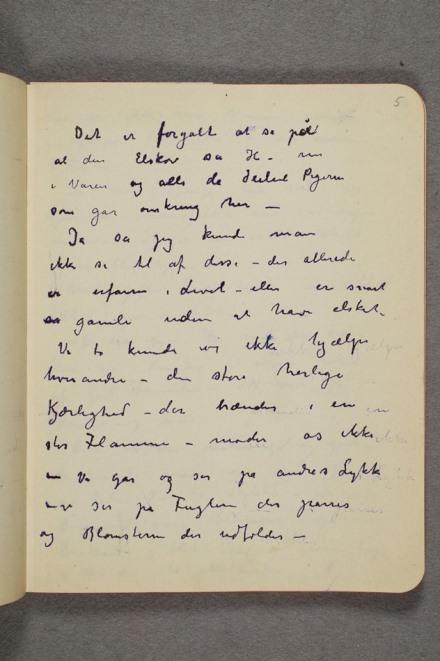 5
Det er forgalt at se på
al den Elskov sa H – nu
i Varen og alle de deilige Pigerne
som gar omkring her —
Ja sa jeg kunde man
ikke se til af disse – der allerede
er erfarne i Livet – eller er snart
gamle uden at have elsket.
Vi to kunde vi ikke hjælpe
hverandre – den store herlige
Kjærlighed – der brænder i en
stor Flamme – møder os ikke
– vi gar og ser pa andres Lykk
– vi ser pa Fuglene der parres
og Blomsterne der udfolder —